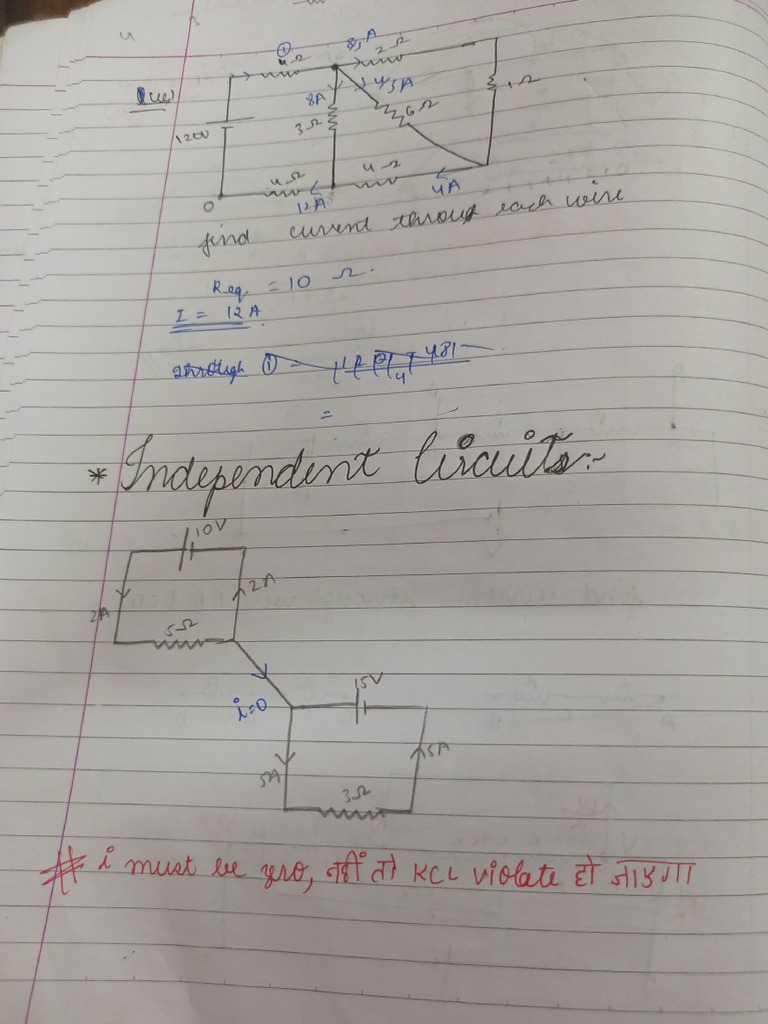 ①
4Ω
8/3A
2Ω
1Ω
8A
4/3A
3Ω
6Ω
120V
4Ω
4Ω
0
12A
4A
find current through each wire
Req. = 10 Ω.
I = 12 A
through ① -
=
* Independent Circuits:-
10V
2A
2A
5Ω
i=0
15V
5A
5A
3Ω
# i must be zero, नहीं तो KCL violate हो जाएगा